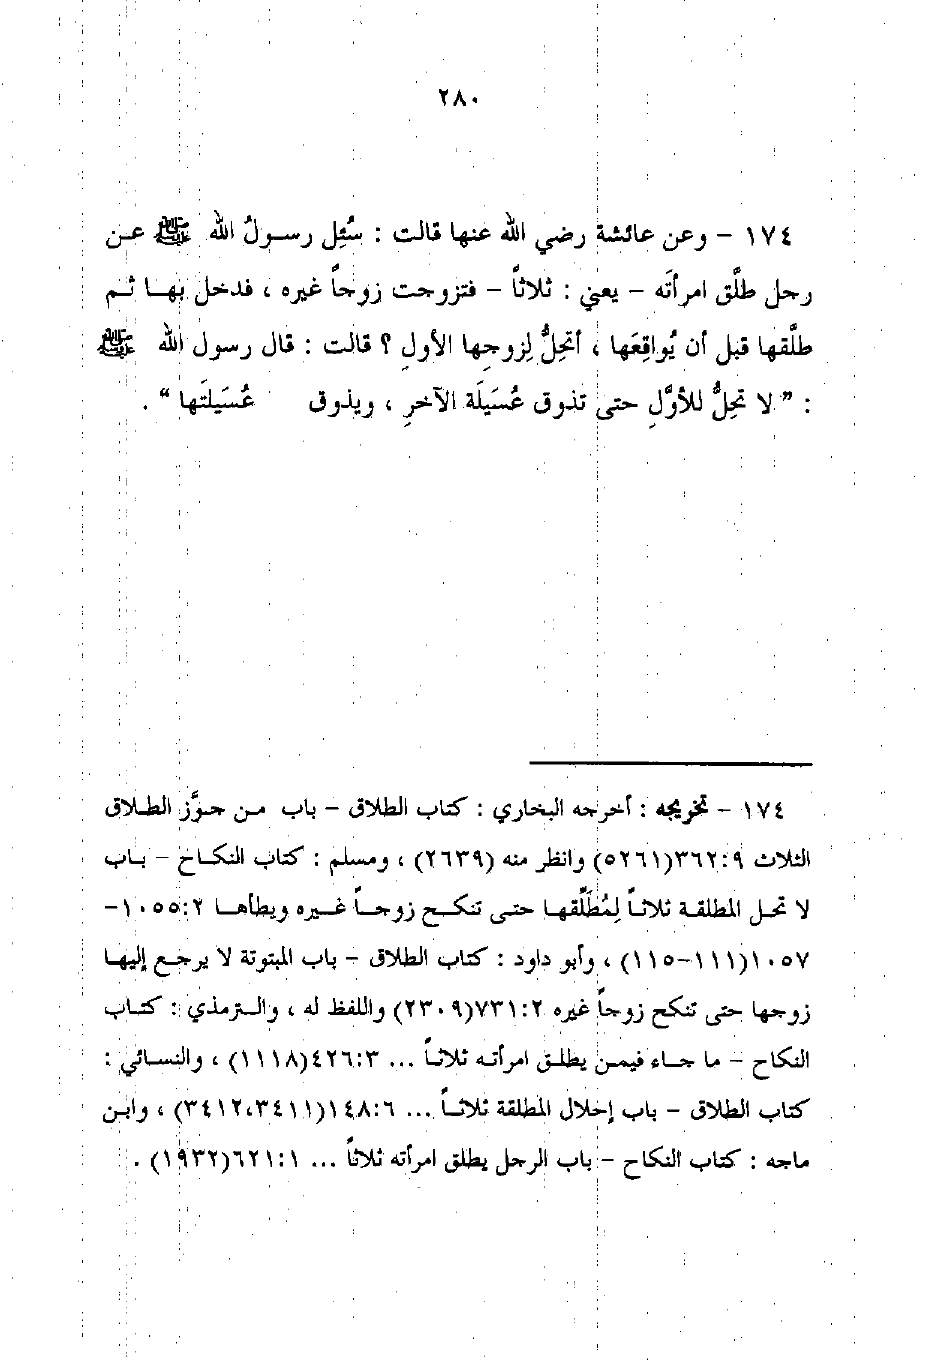 ٢٨٠
١٧٤ – وعن عائشة رضي الله عنها قالت : سُئِل رسـولُ الله ﷺ عـن
رجل طلَّق امرأتَه – يعني : ثلاثاً – فتزوجت زوجاً غيره ، فدخل بهـا ثـم
طلَّقها قبل أن يُواقِعَها ، أتحِلُّ لِزوجِها الأولِ ؟ قالت : قال رسول الله ﷺ
: ” لا تحِلُّ للأوَّلِ حتى تذوق عُسَيلَة الآخرِ ، ويذوق عُسَيلَتَها “ .
١٧٤ – تخريجه : أخرجه البخاري : كتاب الطلاق – باب مـن جـوَّز الطـلاق
الثلاث ٣٦٢:٩(٥٢٦١) وانظر منه (٢٦٣٩) ، ومسلم : كتاب النكـاح – بـاب
لا تحـل المطلقـة ثلاثـاً لِمُطَلِّقهـا حتـى تنكـح زوجـاً غـيره ويطأهـا ١٠٥٥:٢–
١٠٥٧(١١١–١١٥) ، وأبو داود : كتاب الطلاق – باب المبتوتة لا يرجـع إليهـا
زوجها حتى تنكح زوجاً غيره ٧٣١:٢(٢٣٠٩) واللفظ له ، والـترمذي : كتـاب
النكاح – ما جـاء فيمـن يطلـق امرأتـه ثلاثـاً ... ٤٢٦:٣(١١١٨) ، والنسـائي :
كتاب الطلاق – باب إحلال المطلقة ثلاثـاً ... ١٤٨:٦(٣٤١٢،٣٤١١) ، وابـن
ماجه : كتاب النكاح – باب الرجل يطلق امرأته ثلاثاً ... ٦٢١:١(١٩٣٢) .